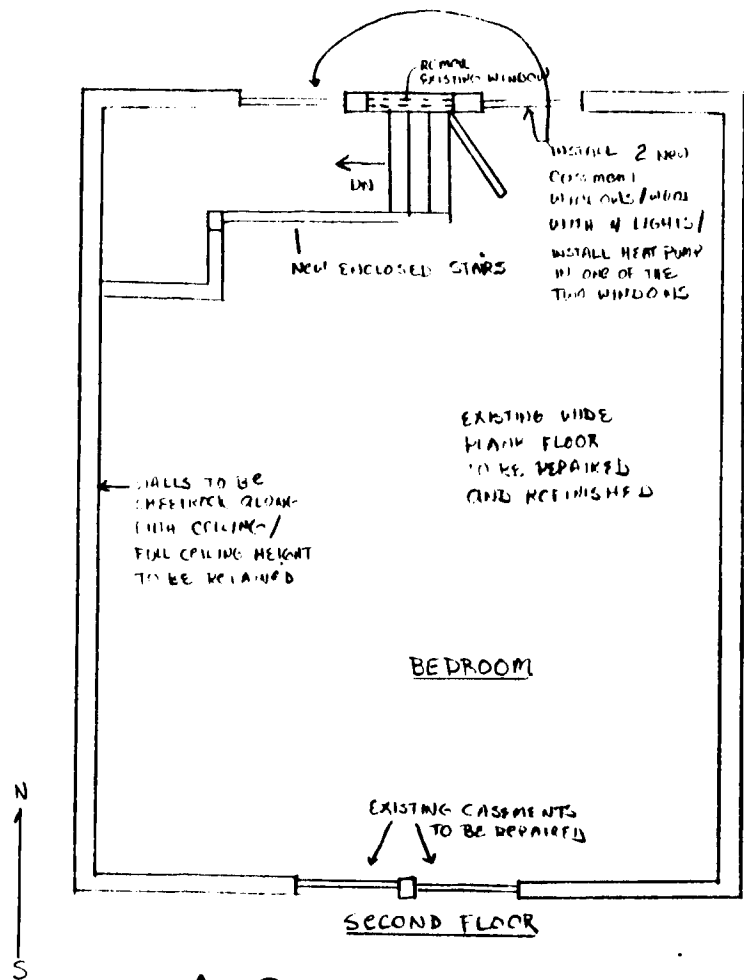 EXISTING WINDOW
INSTALL 2 NEW
CASEMENT
WINDOWS/WOOD
WITH 4 LIGHTS/
INSTALL HEAT PUMP
IN ONE OF THE
TWO WINDOWS
DN
NEW ENCLOSED STAIRS
EXISTING WIDE
PLANK FLOOR
TO BE REPAIRED
AND REFINISHED
WALLS TO BE
SHEETROCK ALONG
WITH CEILING/
FULL CEILING HEIGHT
TO BE RETAINED
BEDROOM
N
S
EXISTING CASEMENTS
TO BE REPAIRED
SECOND FLOOR